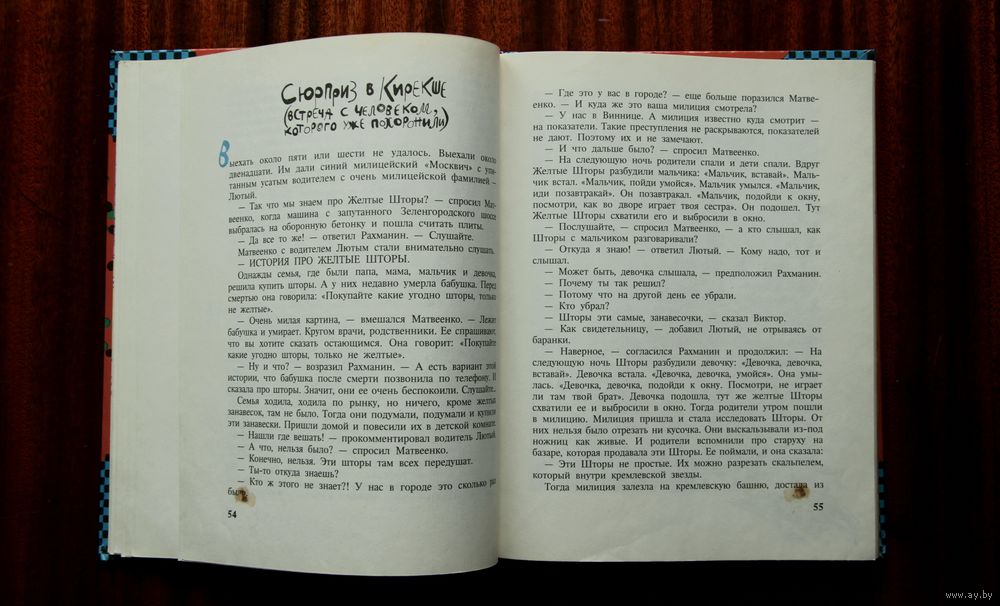 Сюрприз в Кирекше
(встреча с человеком,
которого уже похоронили)
Выехать около пяти или шести не удалось. Выехали около
двенадцати. Им дали синий милицейский «Москвич» с упи-
танным усатым водителем с очень милицейской фамилией —
Лютый.
— Так что мы знаем про Желтые Шторы? — спросил Мат-
веенко, когда машина с запутанного Зеленгородского шоссе
выбралась на оборонную бетонку и пошла считать плиты.
— Да все то же! — ответил Рахманин. — Слушайте.
Матвеенко с водителем Лютым стали внимательно слушать.
— ИСТОРИЯ ПРО ЖЕЛТЫЕ ШТОРЫ.
Однажды семья, где были папа, мама, мальчик и девочка,
решила купить шторы. А у них недавно умерла бабушка. Перед
смертью она говорила: «Покупайте какие угодно шторы, только
не желтые».
— Очень милая картина, — вмешался Матвеенко. — Лежит
бабушка и умирает. Кругом врачи, родственники. Ее спрашивают,
что вы хотите сказать остающимся. Она говорит: «Покупайте
какие угодно шторы, только не желтые».
— Ну и что? — возразил Рахманин. — А есть вариант этой
истории, что бабушка после смерти позвонила по телефону. И
сказала про шторы. Значит, они ее очень беспокоили. Слушайте.
Семья ходила, ходила по рынку, но ничего, кроме желтых
занавесок, там не было. Тогда они подумали, подумали и купили
эти занавески. Пришли домой и повесили их в детской комнате.
— Нашли где вешать! — прокомментировал водитель Лютый.
— А что, нельзя было? — спросил Матвеенко.
— Конечно, нельзя. Эти шторы там всех передушат.
— Ты-то откуда знаешь?
— Кто ж этого не знает?! У нас в городе это сколько раз
было.
54
— Где это у вас в городе? — еще больше поразился Матве-
енко. — И куда же это ваша милиция смотрела?
— У нас в Виннице. А милиция известно куда смотрит —
на показатели. Такие преступления не раскрываются, показателей
не дают. Поэтому их и не замечают.
— И что дальше было? — спросил Матвеенко.
— На следующую ночь родители спали и дети спали. Вдруг
Желтые Шторы разбудили мальчика: «Мальчик, вставай». Маль-
чик встал. «Мальчик, пойди умойся». Мальчик умылся. «Мальчик,
иди позавтракай». Он позавтракал. «Мальчик, подойди к окну,
посмотри, как во дворе играет твоя сестра». Он подошел. Тут
Желтые Шторы схватили его и выбросили в окно.
— Послушайте, — спросил Матвеенко, — а кто слышал, как
Шторы с мальчиком разговаривали?
— Откуда я знаю! — ответил Лютый. — Кому надо, тот и
слышал.
— Может быть, девочка слышала, — предположил Рахманин.
— Почему ты так решил?
— Потому что на другой день ее убрали.
— Кто убрал?
— Шторы эти самые, занавесочки, — сказал Виктор.
— Как свидетельницу, — добавил Лютый, не отрываясь от
баранки.
— Наверное, — согласился Рахманин и продолжил: — На
следующую ночь Шторы разбудили девочку: «Девочка, девочка,
вставай». Девочка встала. «Девочка, девочка, умойся». Она умы-
лась. «Девочка, девочка, подойди к окну. Посмотри, не играет
ли там твой брат». Девочка подошла, тут же желтые Шторы
схватили ее и выбросили в окно. Тогда родители утром пошли
в милицию. Милиция пришла и стала исследовать Шторы. От
них нельзя было отрезать ни кусочка. Они выскальзывали из-под
ножниц как живые. И родители вспомнили про старуху на
базаре, которая продавала эти Шторы. Ее поймали, и она сказала:
— Эти Шторы не простые. Их можно разрезать скальпелем,
который внутри кремлевской звезды.
Тогда милиция залезла на кремлевскую башню, достала из
55
www.ay.by